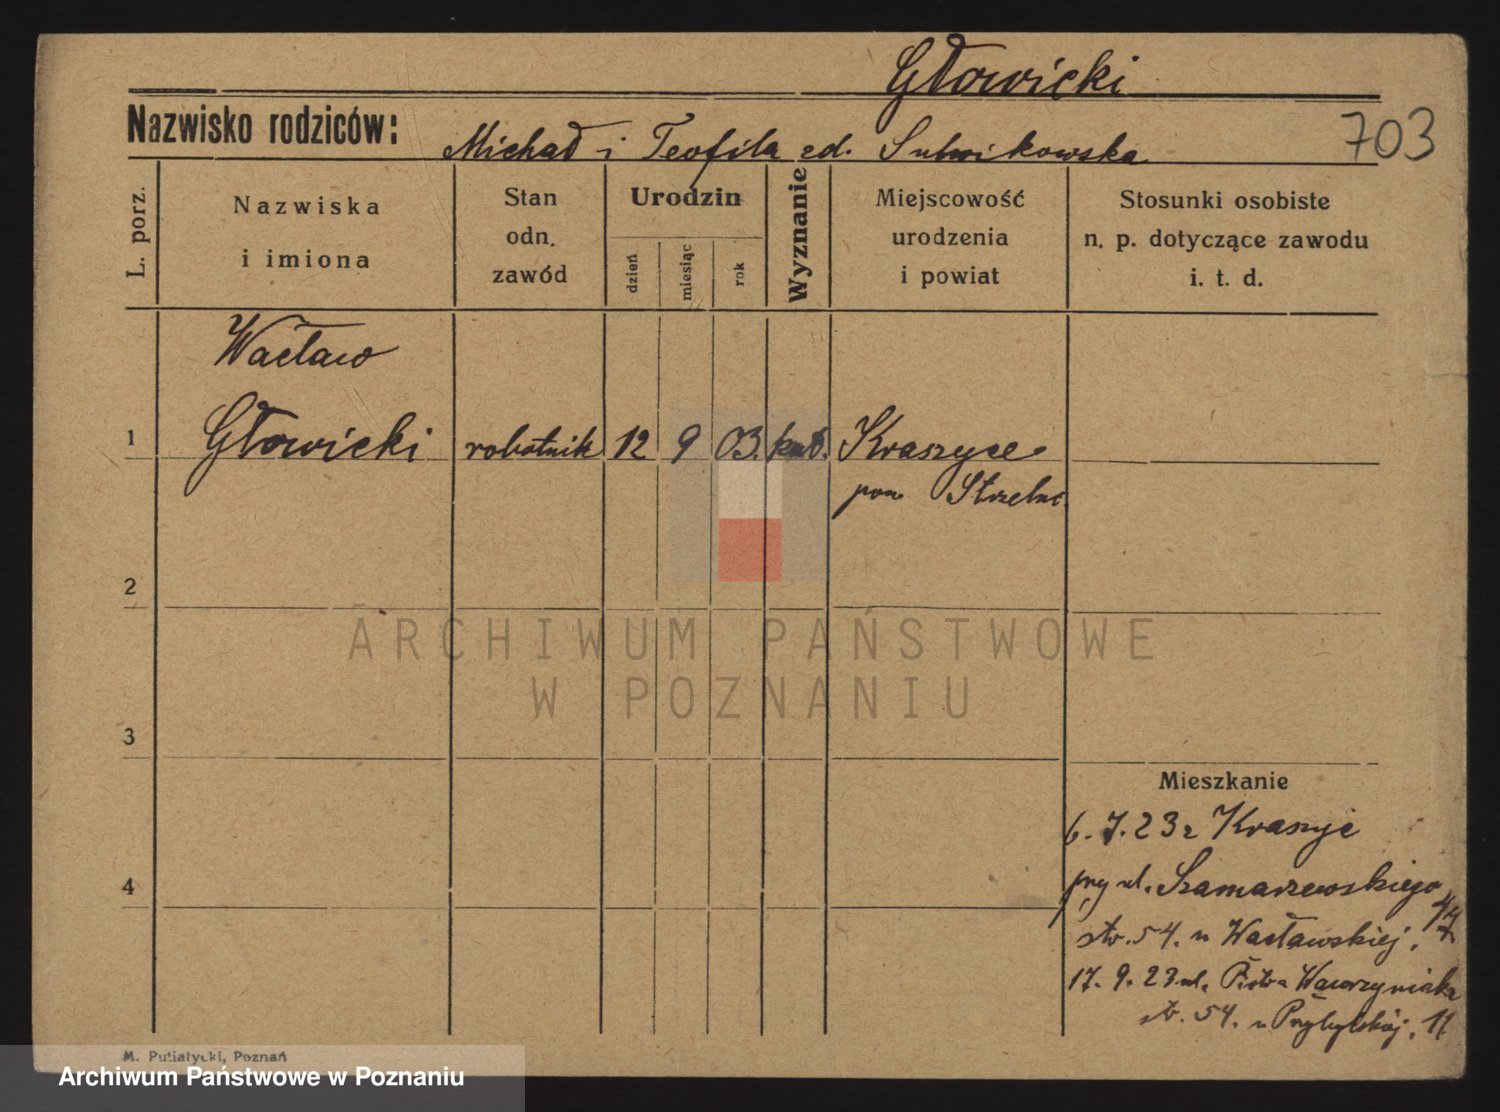 Głowicki
Nazwisko rodziców: Michał i Teofila zd. Sulmikowska
703
L. porz.
Nazwiska
i imiona
Stan
odn.
zawód
Urodzin
dzień
miesiąc
rok
Wyznanie
Miejscowość
urodzenia
i powiat
Stosunki osobiste
n. p. dotyczące zawodu
i. t. d.
Wacław
1 Głowicki robotnik 12 9 03. kat. Kraszyce
pow Strzelno.
2
ARCHIWUM PAŃSTWOWE
W POZNANIU
3
Mieszkanie
6. 7. 23 z Kraszyc
4
przy ul. Szamarzewskiego
str. 54. u Wacławskiej.
17. 9. 23 ul. Piotra Wawrzyniaka
str. 54. u Przybylskiej. 11
M. Putiatycki, Poznań
Archiwum Państwowe w Poznaniu